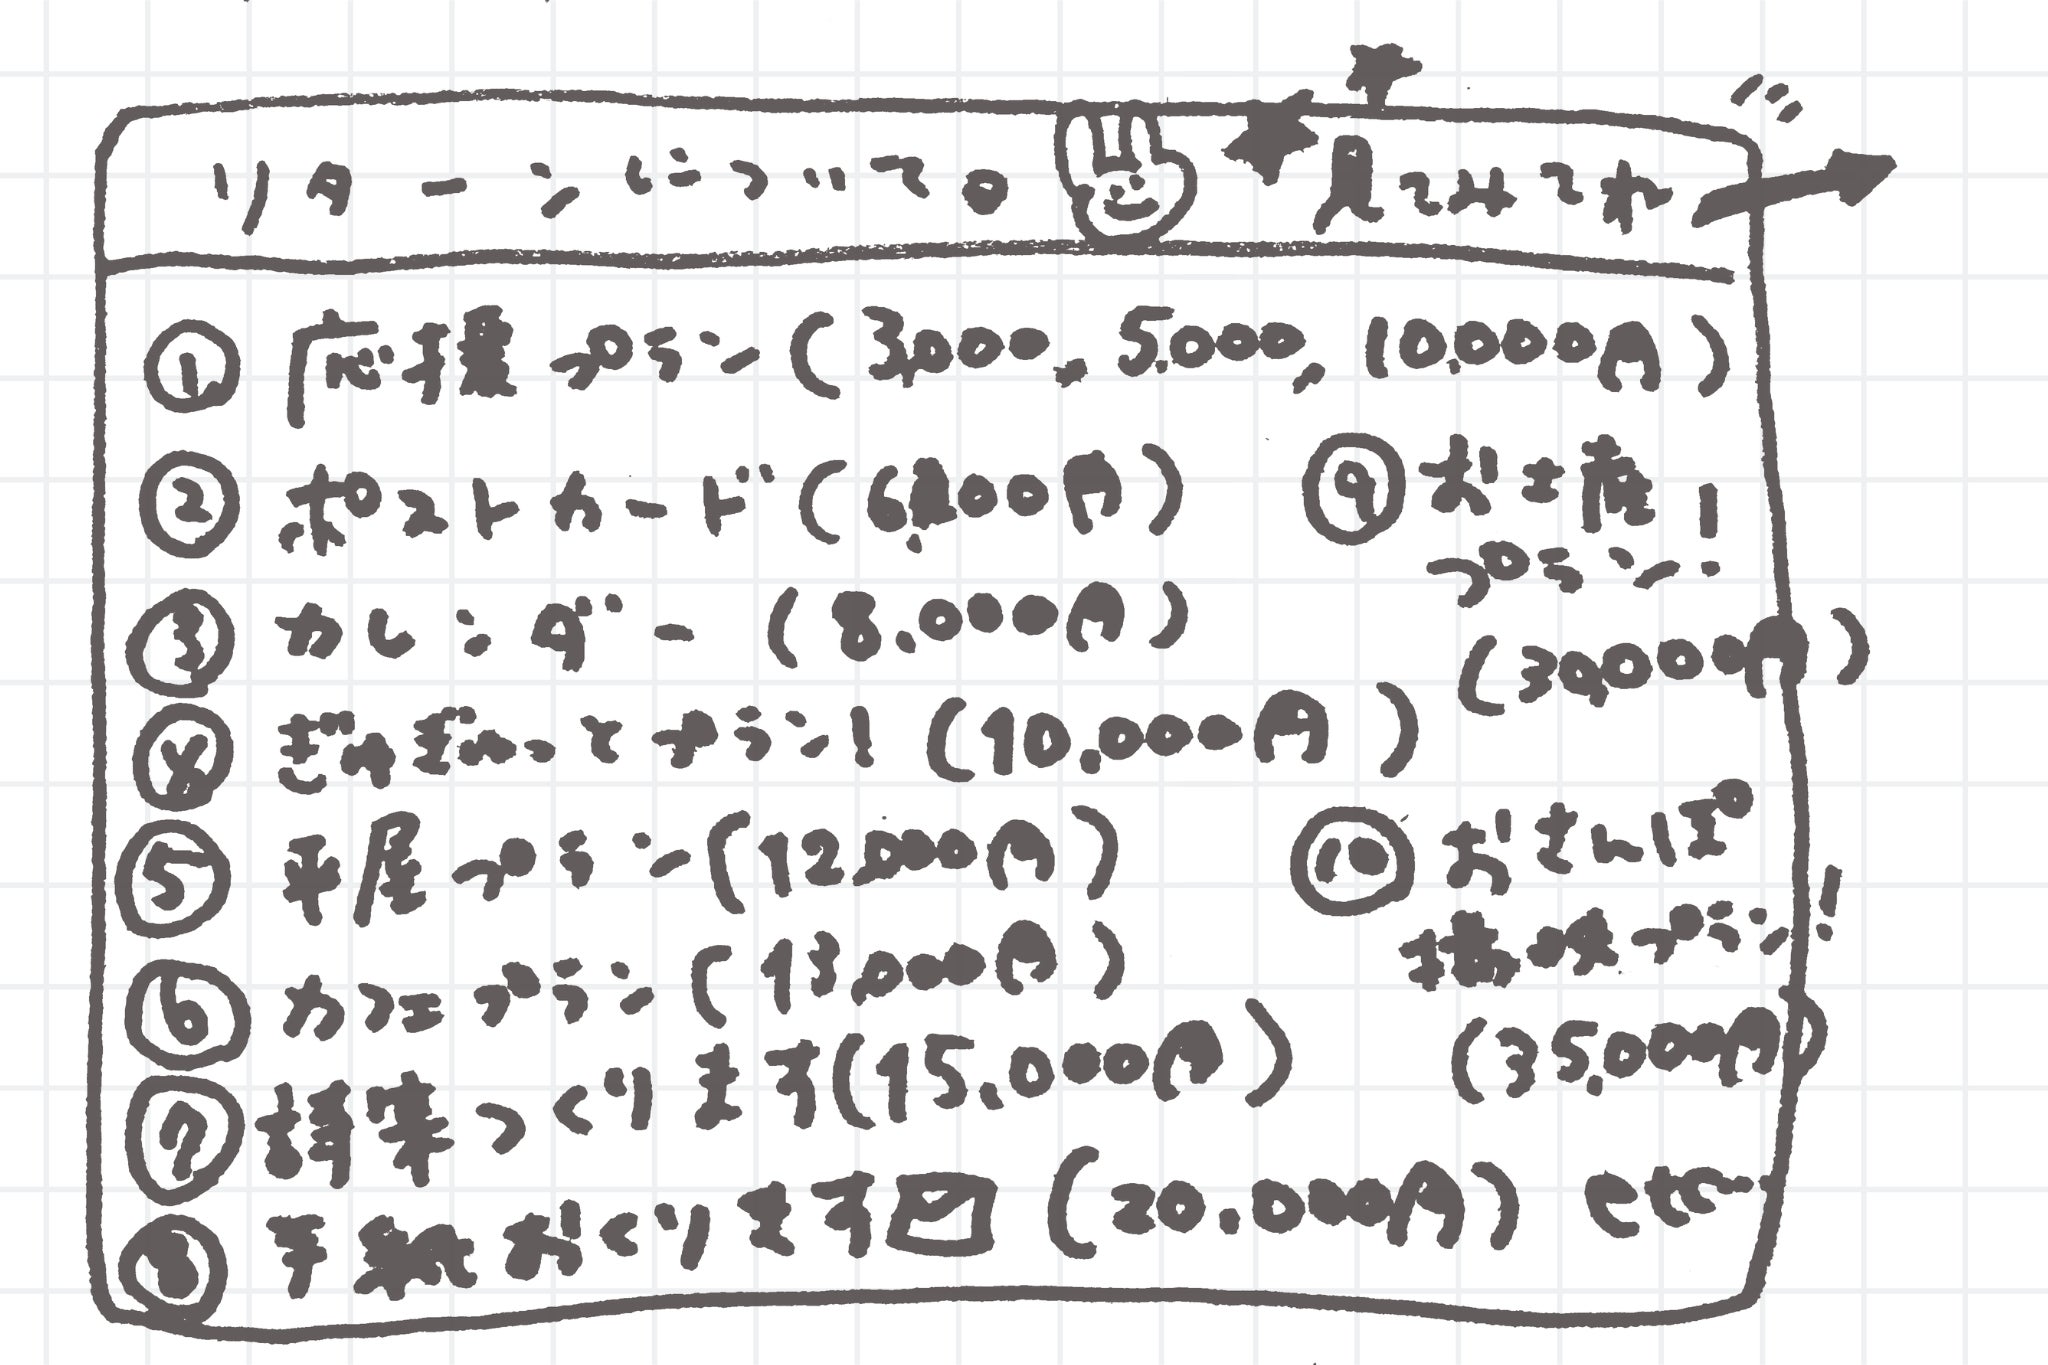 リターンについて。 見てみてね
① 応援プラン(3,000, 5,000, 10,000円)
② ポストカード(6,000円)
③ カレンダー (8,000円)
④ ぎゅぎゅっとプラン! (10,000円)
⑤ 平屋プラン(12,000円)
⑥ カフェプラン(13,000円)
⑦ つくります(15,000円)
⑧ 手紙おくります (20,000円) etc…
⑨ お土産
プラン!
(30,000円)
⑩ おさんぽ
撮影プラン!
(35,000円)